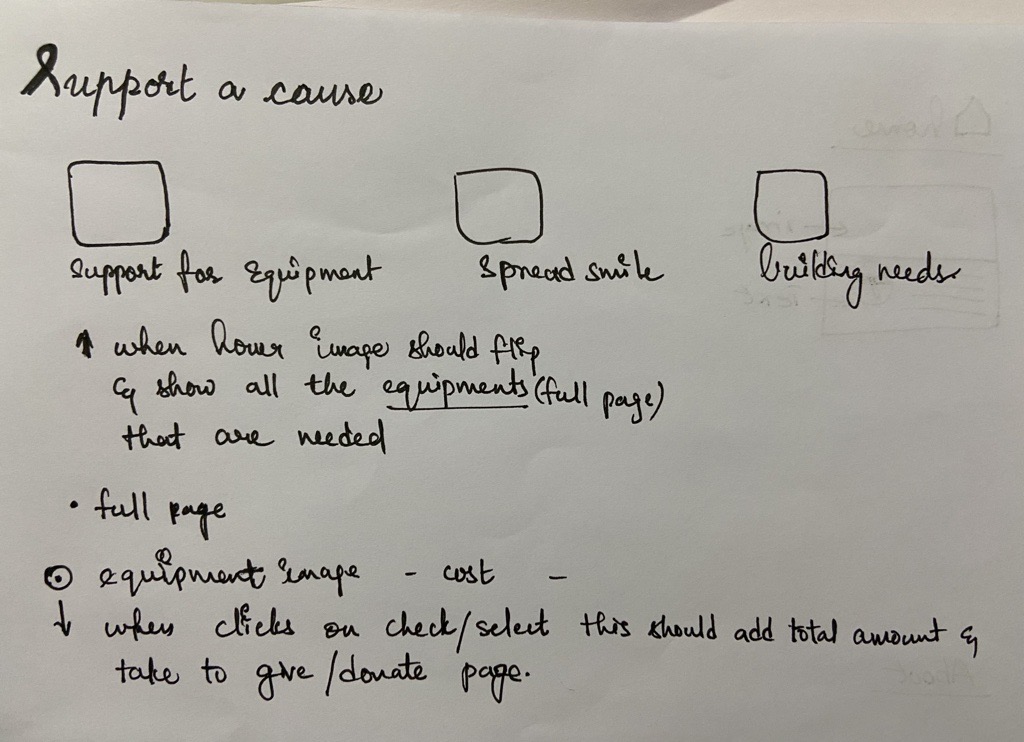 Support a cause
Support for Equipment
Spread smile
building needs
↑ when hover image should flip
& show all the equipments (full page)
that are needed
• full page
⊙ equipment image - cost -
↓ when clicks on check/select this should add total amount &
take to give/donate page.
home
About